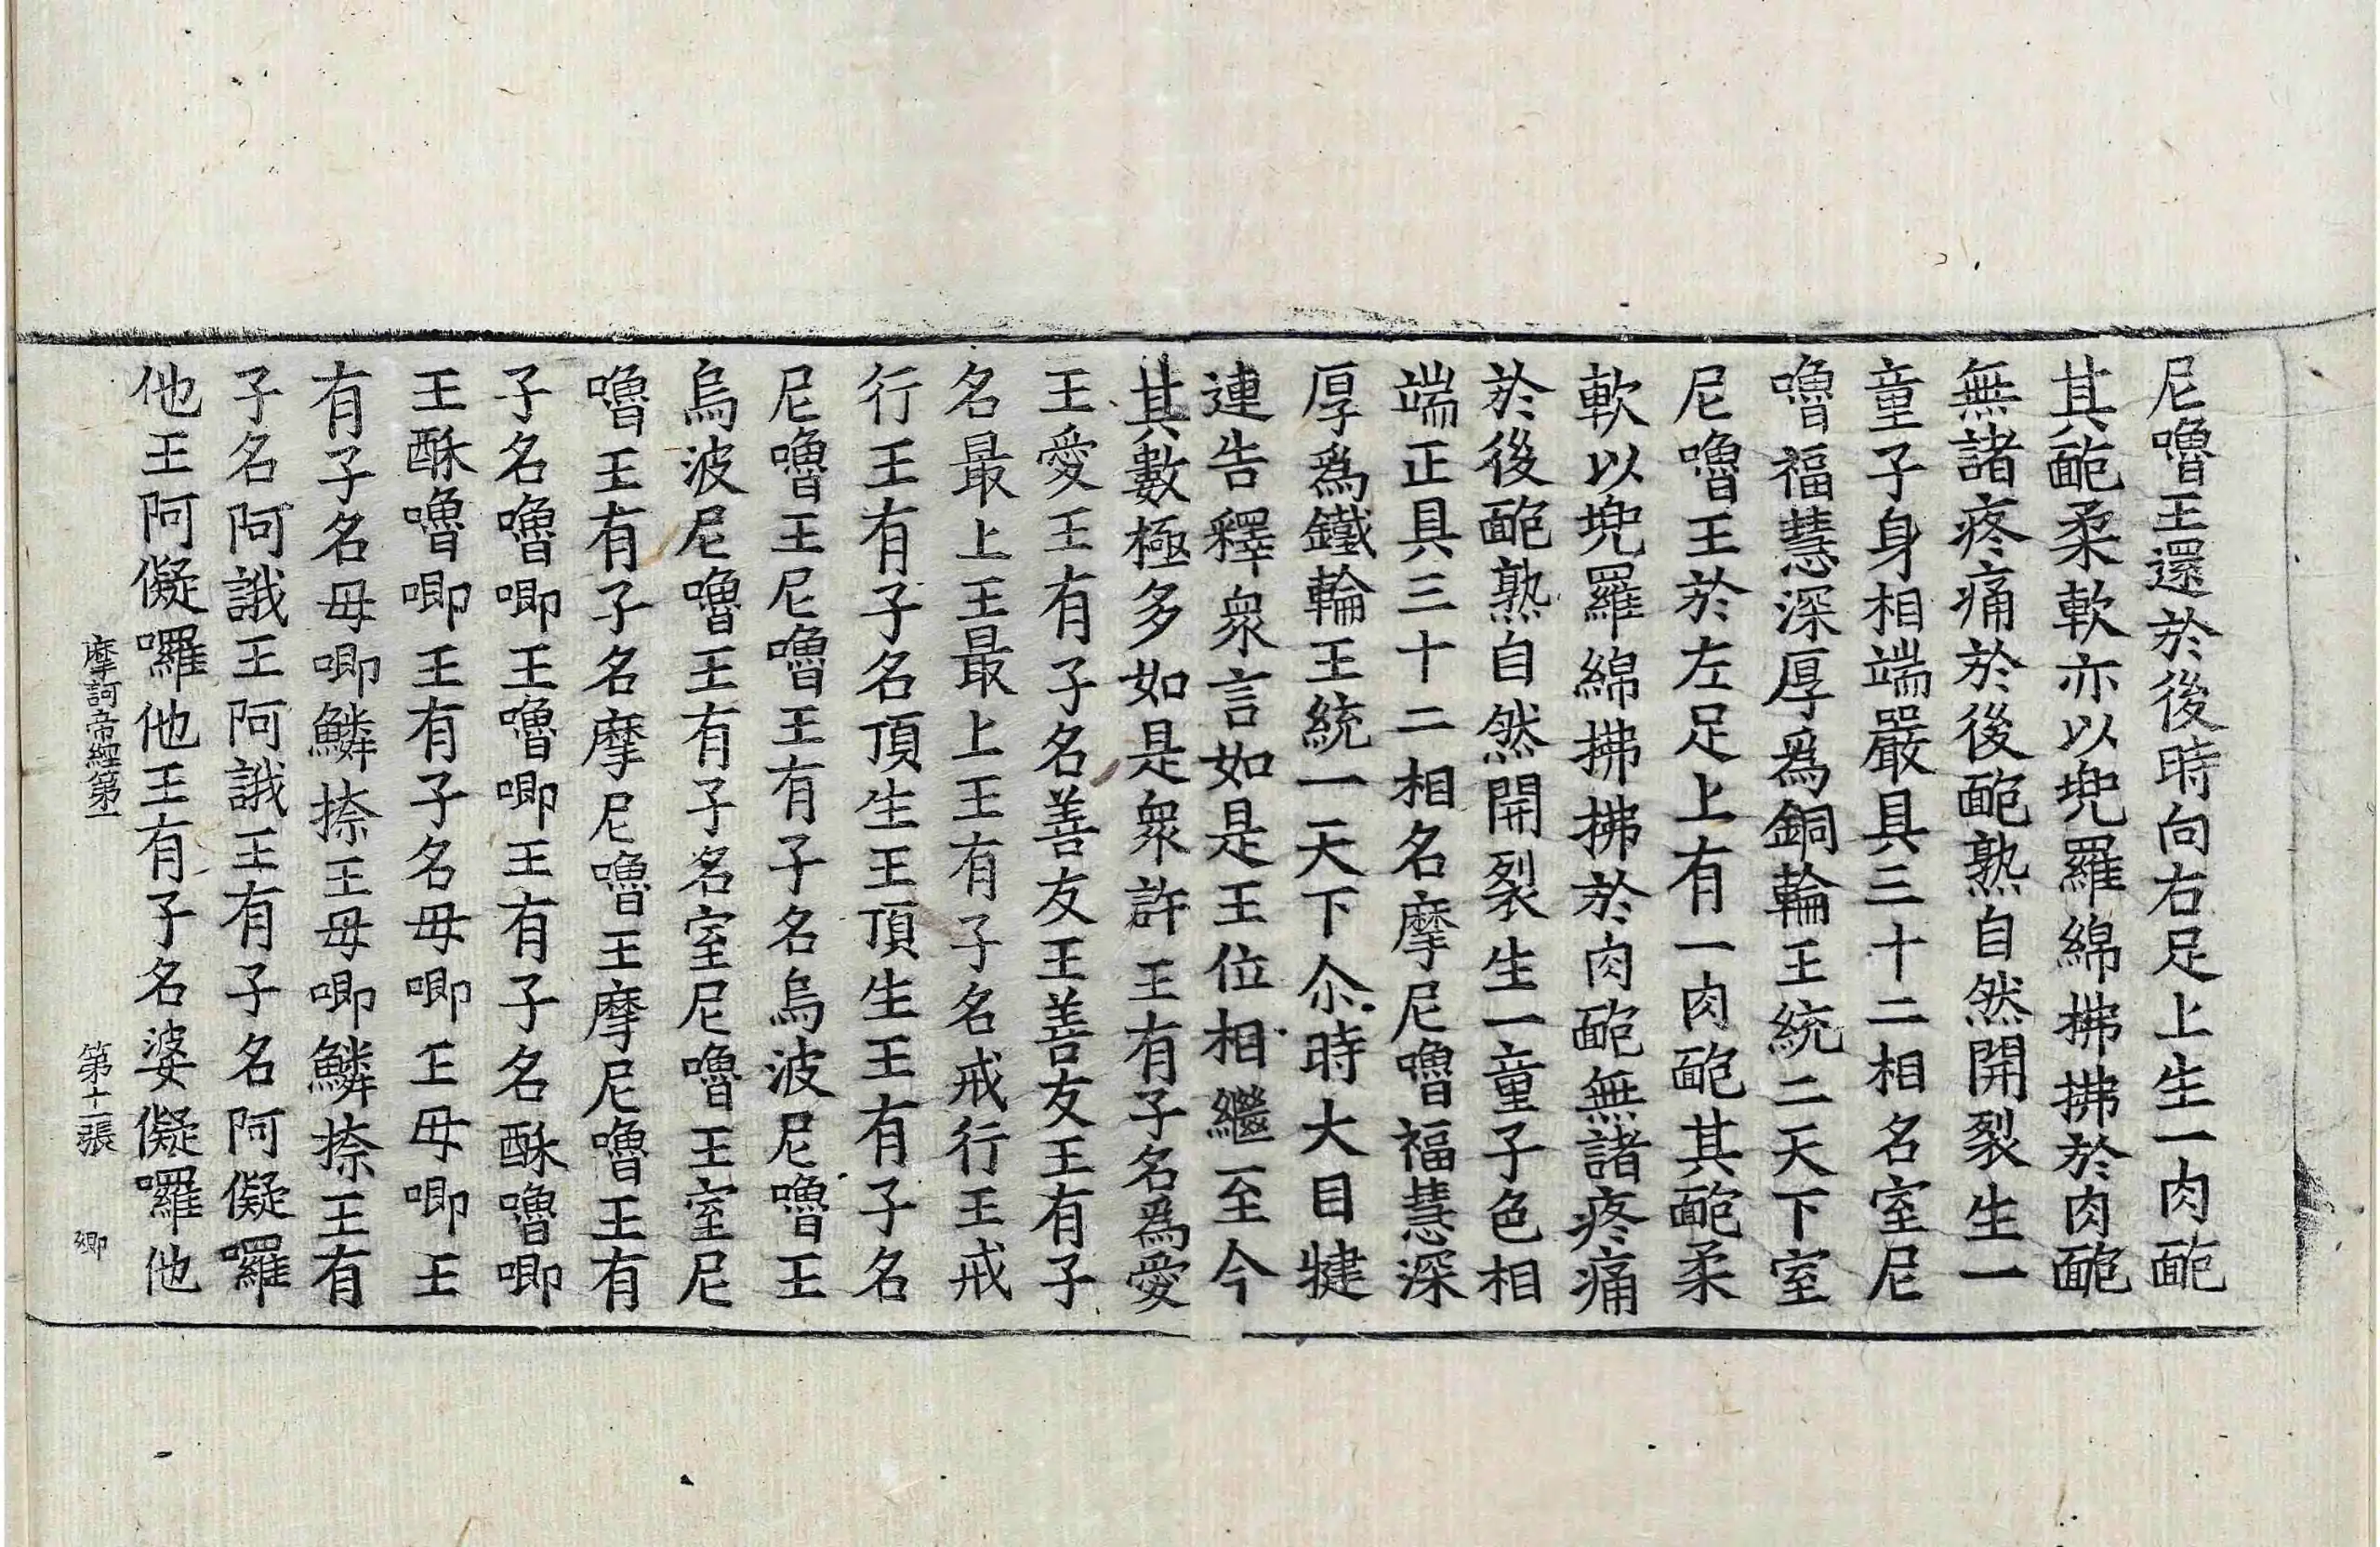 尼嚕王還於後時向右足上生一肉皰
其皰柔軟亦以兜羅綿拂拂於肉皰
無諸疼痛於後皰熟自然開裂生一
童子身相端嚴具三十二相名室尼
嚕福慧深厚爲銅輪王統二天下室
尼嚕王於左足上有一肉皰其皰柔
軟以兜羅綿拂拂於肉皰無諸疼痛
於後皰熟自然開裂生一童子色相
端正具三十二相名摩尼嚕福慧深
厚爲鐵輪王統一天下尒時大目揵
連告釋衆言如是王位相繼至今
其數極多如是衆許王有子名爲愛
王愛王有子名善友王善友王有子
名最上王最上王有子名戒行王戒
行王有子名頂生王頂生王有子名
尼嚕王尼嚕王有子名烏波尼嚕王
烏波尼嚕王有子名室尼嚕王室尼
嚕王有子名摩尼嚕王摩尼嚕王有
子名嚕唧王嚕唧王有子名酥嚕唧
王酥嚕唧王有子名毋唧王毋唧王
有子名毋唧鱗捺王毋唧鱗捺王有
子名阿誐王阿誐王有子名阿儗囉
他王阿儗囉他王有子名婆儗囉他
摩訶帝經第一 第十二張 卿